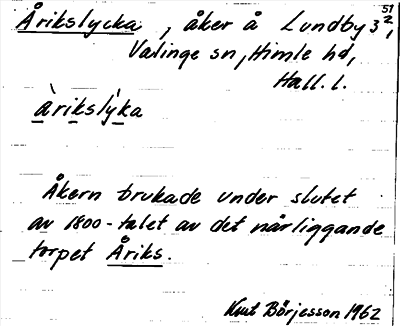 51
Årikslycka, åker å Lundby 3²,
Valinge sn, Himle hd,
Hall. l.
àrikslýka
Åkern brukade under slutet
av 1800-talet av det närliggande
torpet Åriks.
Kurt Börjesson 1962